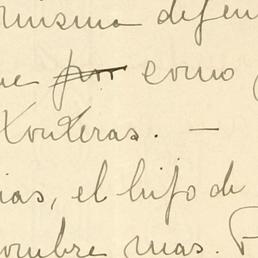 misma defen
ue por como
Contreras. —
ias, el hijo de
ombre mas. P